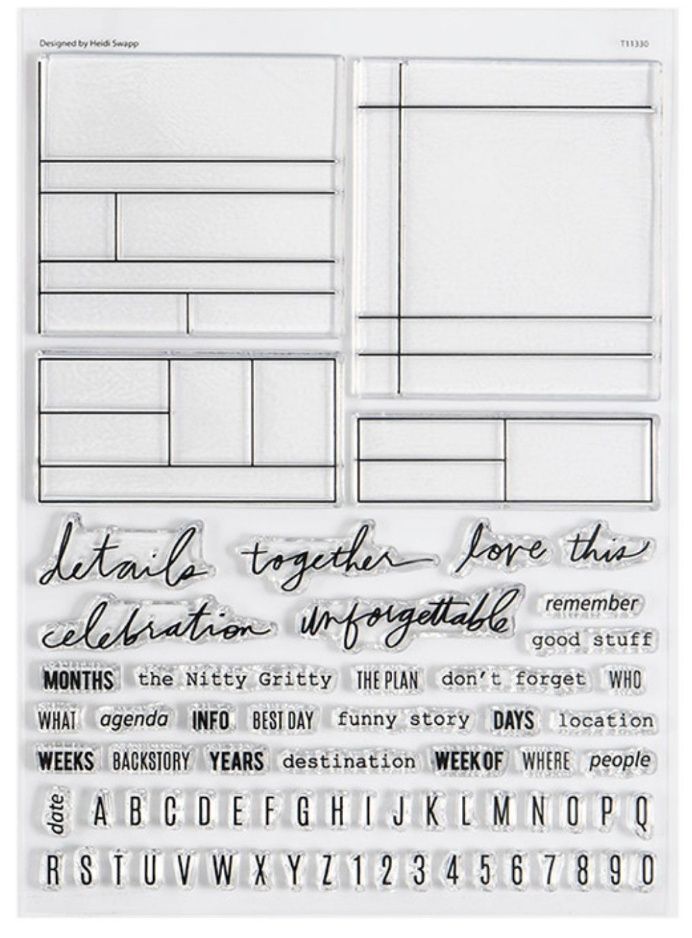 Designed by Heidi Swapp T11330
details together love this
celebration unforgettable remember
good stuff
MONTHS the Nitty Gritty THE PLAN don't forget WHO
WHAT agenda INFO BEST DAY funny story DAYS location
WEEKS BACKSTORY YEARS destination WEEK OF WHERE people
date A B C D E F G H I J K L M N O P Q
R S T U V W X Y Z 1 2 3 4 5 6 7 8 9 0